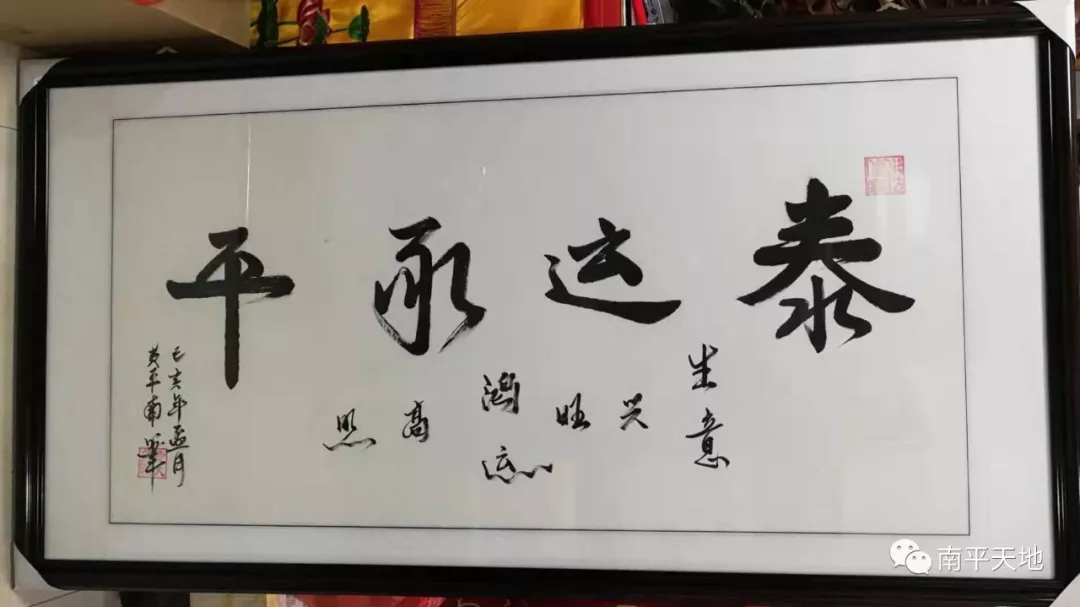 泰运永平
生意兴旺
鸿运高照
己亥年孟月
黄平南笔
南平天地